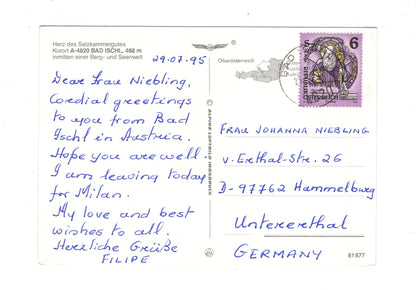 Herz des Salzkammergutes
Kurort A-4820 BAD ISCHL, 468 m
inmitten einer Berg- und Seenwelt
29.07.95
Dear Frau Niebling,
Cordial greetings
to you from Bad
Ischl in Austria.
Hope you are well.
I am leaving today
for Milan.
My love and best
wishes to all.
Herzliche Grüße
FILIPE
© ALPINE LUFTBILD INNSBRUCK
Oberösterreich
6
REPUBLIK
ÖSTERREICH
FRAU JOHANNA NIEBLING
v. Erthal-Str. 26
D-97762 Hammelburg
Untererthal
GERMANY
81677